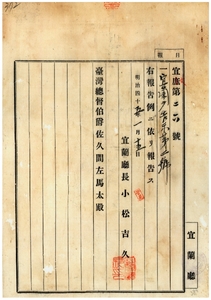 宜庶第二六號
右報告例ニ依リ報告ス
明治四十五年一月十五日
宜蘭廳長小松吉久
臺灣總督伯爵佐久間左馬太殿
宜蘭廳